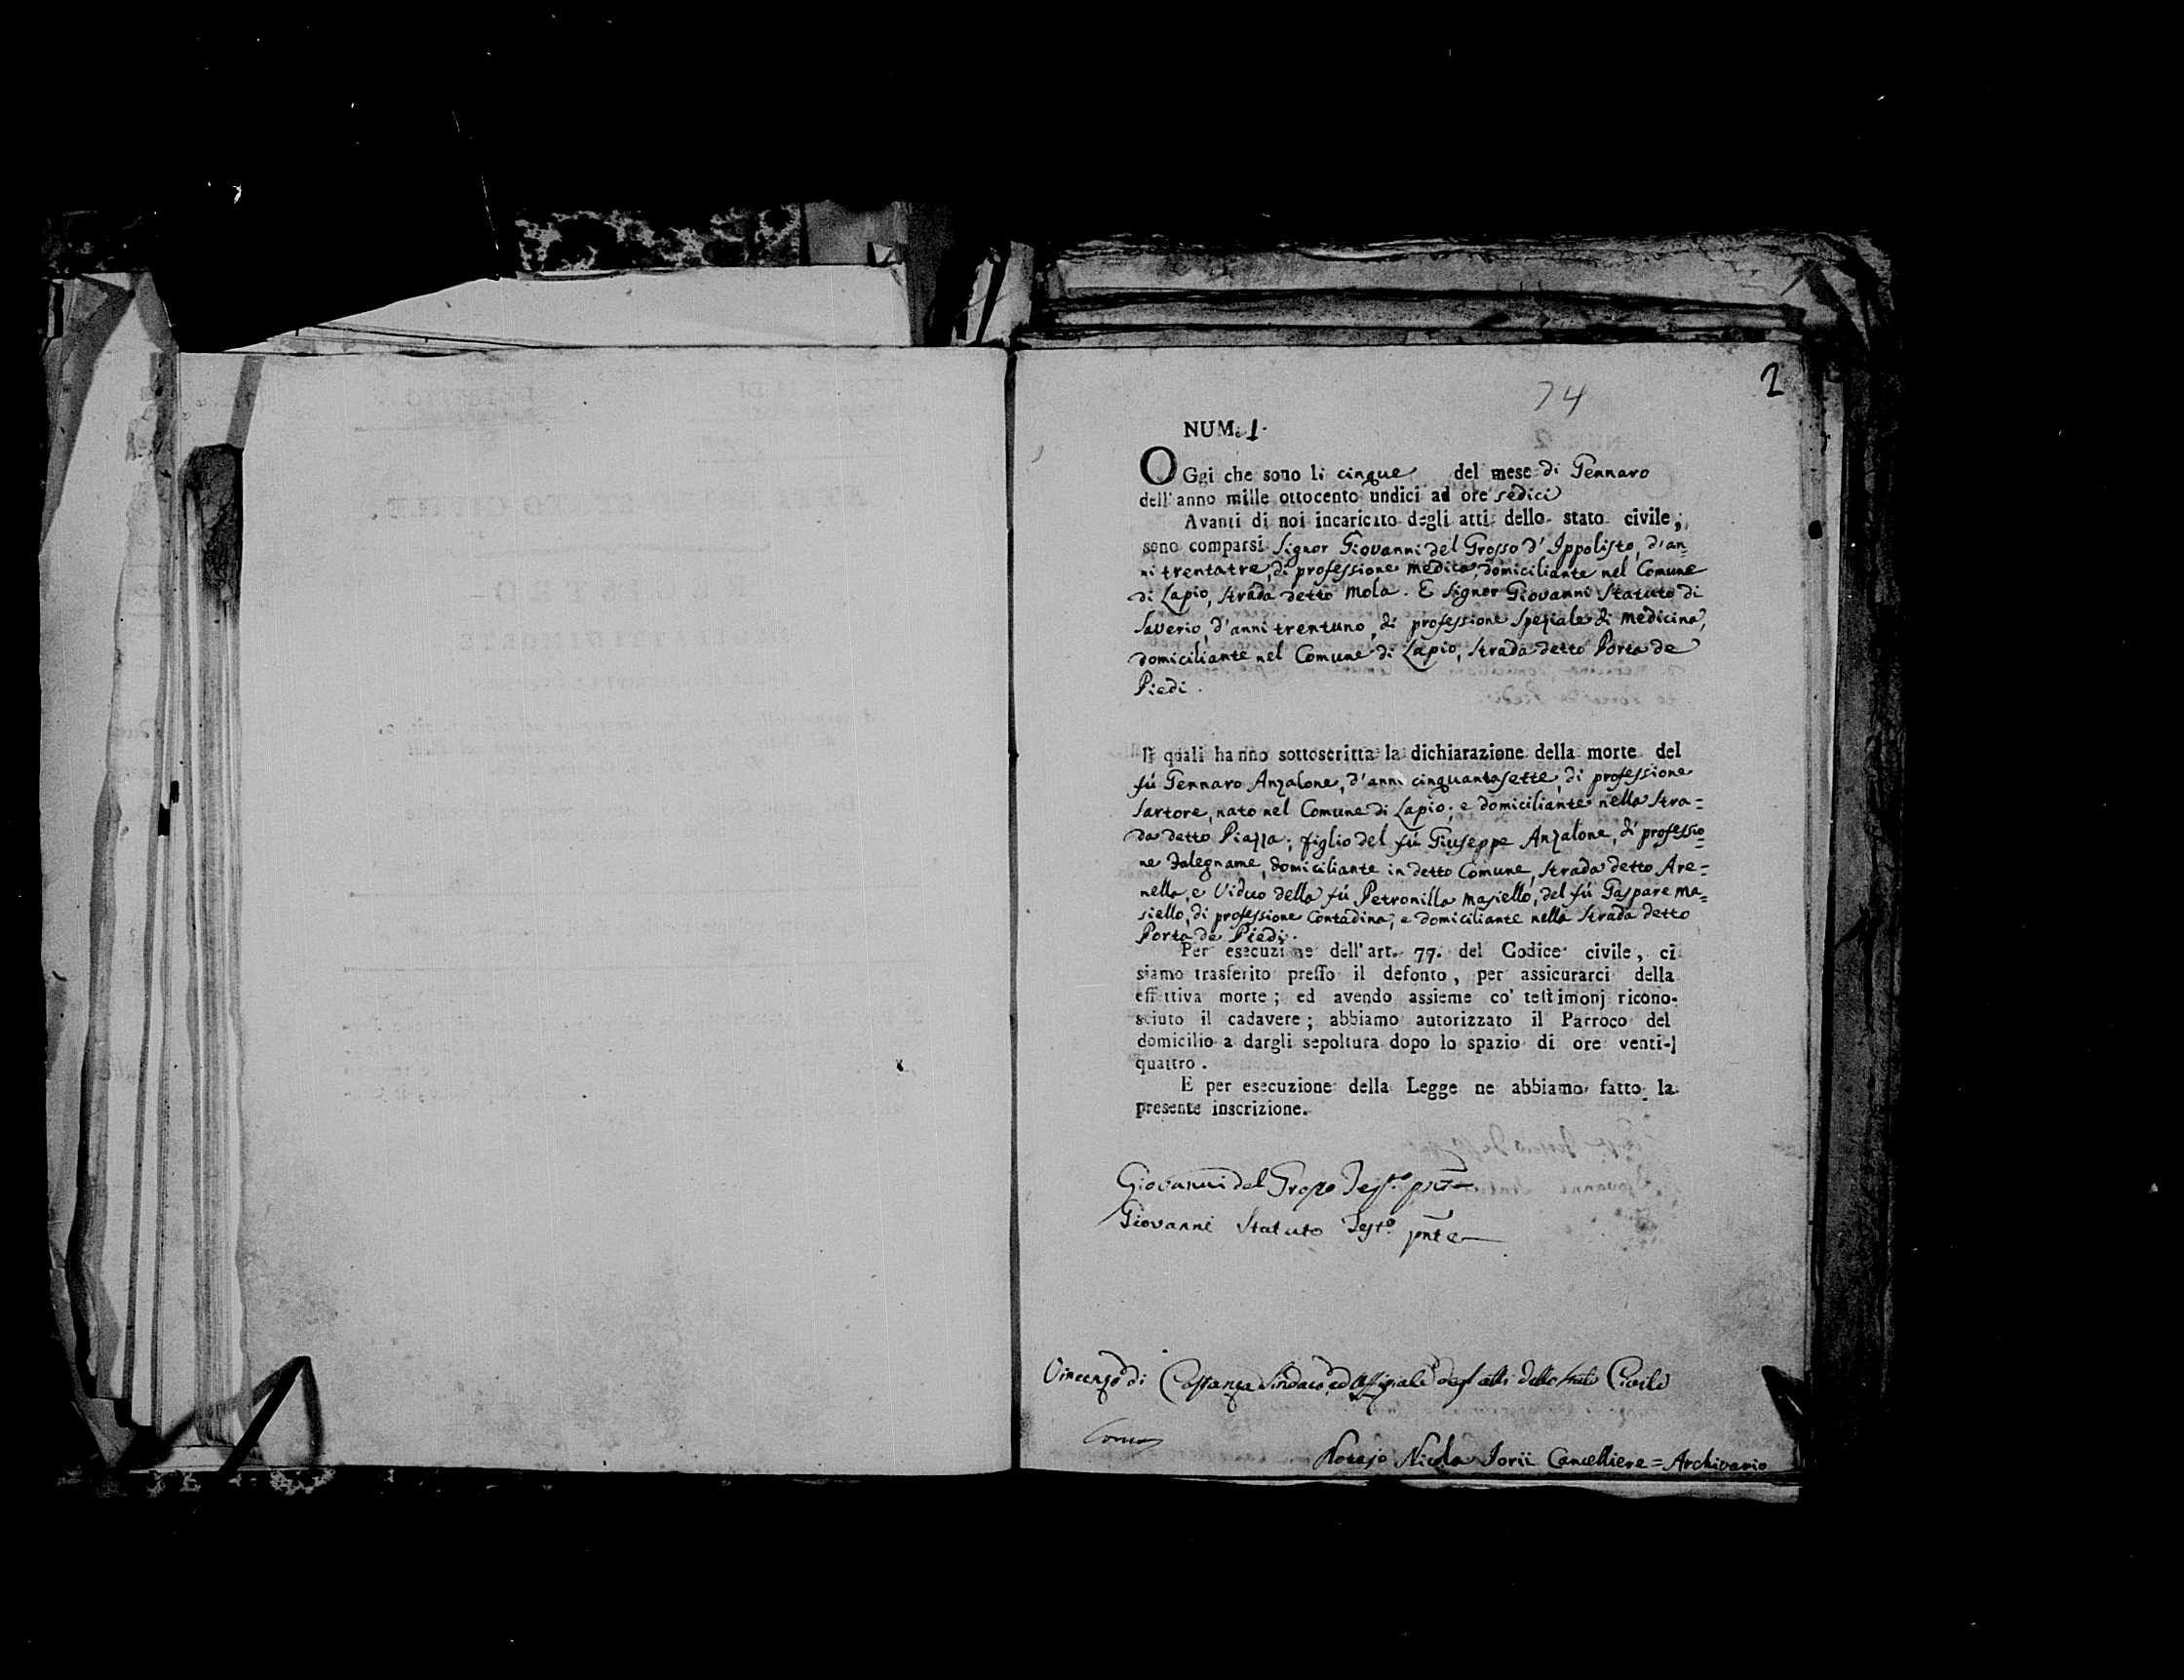 74
2
NUM. 1.
OGgi che sono li cinque del mese di Gennaro
dell'anno mille ottocento undici ad ore sedici
Avanti di noi incaricato degli atti dello stato civile,
sono comparsi Signor Giovanni del Grosso d'Ippolisto, d'an=
ni trentatre, di professione medico, domiciliante nel Comune
di Lapio, strada detto Mola. E Signor Giovanni Statuto di
Saverio, d'anni trentuno, di professione Speziale di medicina,
domiciliante nel Comune di Lapio, strada detto Porta de
Piedi.
li quali hanno sottoscritta la dichiarazione della morte del
fú Gennaro Anzalone, d'anni cinquantasette, di professione
Sartore, nato nel Comune di Lapio, e domiciliante nella stra=
da detto Piazza; figlio del fú Giuseppe Anzalone, di professio=
ne Falegname, domiciliante in detto Comune, strada detto Are=
nella, e Viduo della fú Petronilla Masiello, del fú Gaspare Ma=
siello, di professione Contadina, e domiciliante nella strada detto
Porta de Piedi.
Per esecuzione dell'art. 77. del Codice civile, ci
siamo trasferito presso il defonto, per assicurarci della
effettiva morte; ed avendo assieme co' testimonj ricono-
sciuto il cadavere; abbiamo autorizzato il Parroco del
domicilio a dargli sepoltura dopo lo spazio di ore venti-
quattro.
E per esecuzione della Legge ne abbiamo fatto la
presente inscrizione.
Giovanni del Grosso Test.o pnte
Giovanni Statuto Test.o pnte
Vincenzo di Costanza Sindaco, ed Offiziale degl'atti dello stato Civile
Notajo Nicola Iorii Cancelliere = Archivario